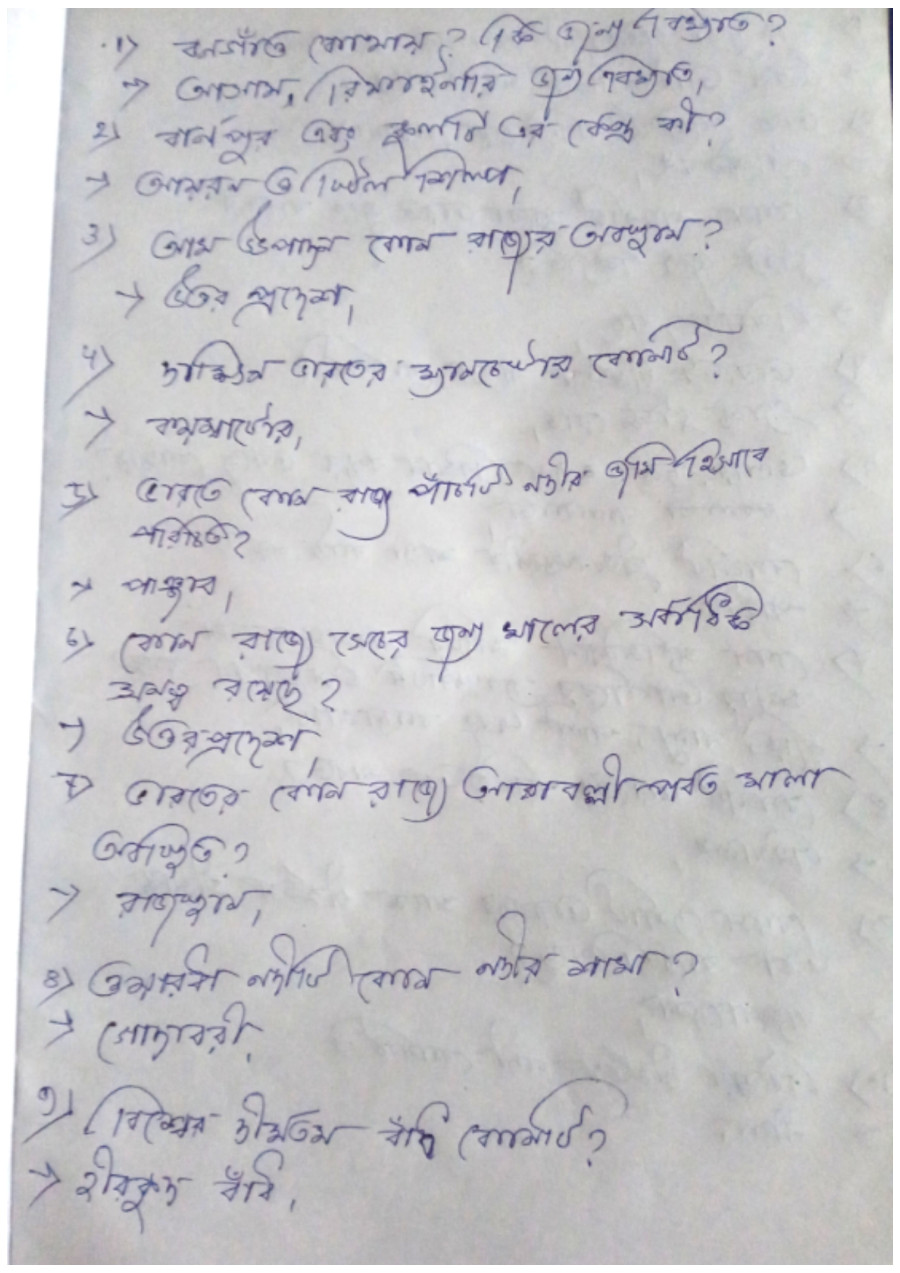 1) বনগাঁতি কোথায়? কি জন্য বিখ্যাত?
→ আসাম, রিফাইনারি জন্য বিখ্যাত,
2) বার্নপুর এবং কুলটি এর কেন্দ্র কী?
→ আয়রন ও স্টিল শিল্প,
3) আম উৎপাদন কোন রাজ্যের অবস্থান?
→ উত্তর প্রদেশ,
4) দাক্ষিন ভারতের ম্যানচেস্টার কোনটি?
→ কয়ম্বাটোর,
5) ভারতে কোন রাজ্য পাঁচটি নদীর ভূমি হিসাবে
পরিচিত?
→ পাঞ্জাব,
6) কোন রাজ্যে সেচের জন্য খালের সর্বাধিক
ঘনত্ব রয়েছে?
→ উত্তরপ্রদেশ,
7) ভারতের কোন রাজ্যে আরাবল্লী পর্বত মালা
অবস্থিত?
→ রাজস্থান,
8) ওয়ারধা নদীটি কোন নদীর শাখা?
→ গোদাবরী,
9) বিশ্বের দীর্ঘতম বাঁধ কোনটি?
→ হীরাকুদ বাঁধ,